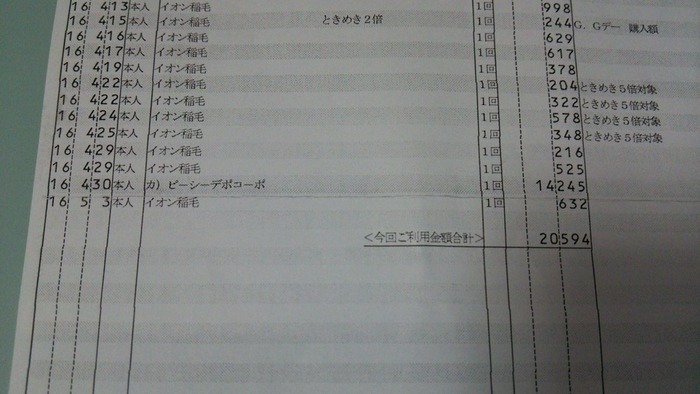 16 4 13 本人 イオン稲毛 1回 998
16 4 15 本人 イオン稲毛 ときめき2倍 1回 244 G．Gデー 購入額
16 4 16 本人 イオン稲毛 1回 629
16 4 17 本人 イオン稲毛 1回 617
16 4 19 本人 イオン稲毛 1回 378
16 4 22 本人 イオン稲毛 1回 204 ときめき5倍対象
16 4 22 本人 イオン稲毛 1回 322 ときめき5倍対象
16 4 24 本人 イオン稲毛 1回 578 ときめき5倍対象
16 4 25 本人 イオン稲毛 1回 348 ときめき5倍対象
16 4 29 本人 イオン稲毛 1回 216
16 4 29 本人 イオン稲毛 1回 525
16 4 30 本人 カ）ピーシーデポコーポ 1回 14245
16 5 3 本人 イオン稲毛 1回 632
＜今回ご利用金額合計＞ 20594